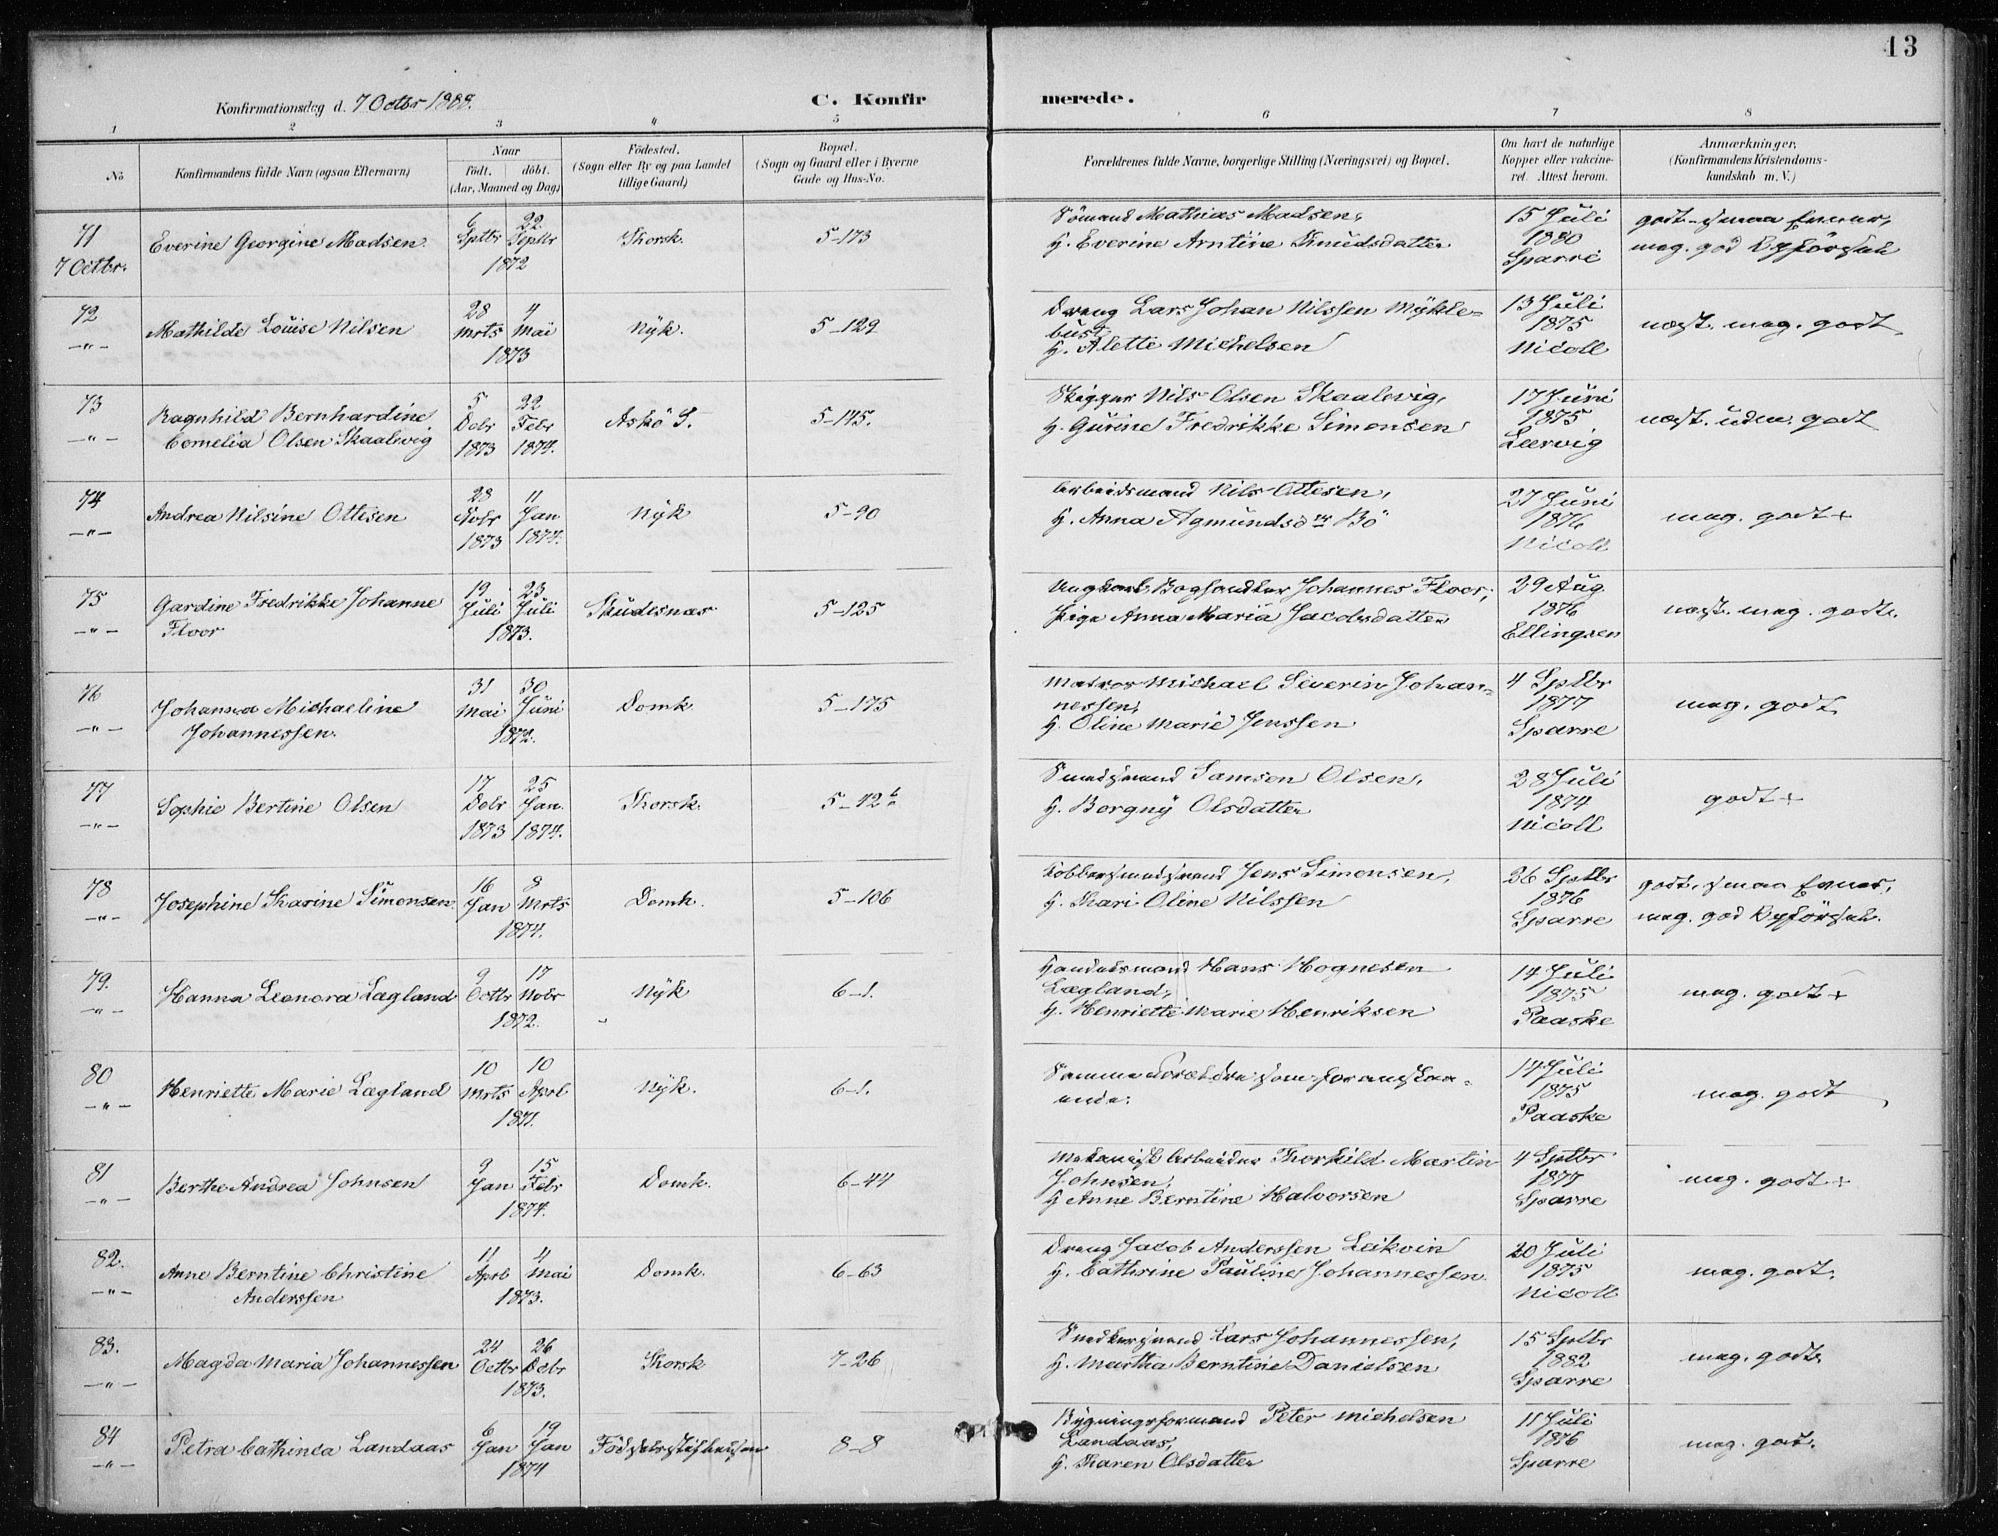 13
Konfirmationsdag d. 7 Octbr 1888.
C. Konfirmerede.
1 2 3 4 5 6 7 8
No
Konfirmandens fulde Navn (ogsaa Efternavn)
Naar
födt. döbt.
(Aar, Maaned og Dag)
Födested.
(Sogn eller By og paa Landet
tillige Gaard)
Bopæl.
(Sogn og Gaard eller i Byerne
Gade og Hus-No.
Forældrenes fulde Navne, borgerlige Stilling (Næringsvei) og Bopæl.
Om havt de naturlige
Kopper eller vakcine-
ret. Attest herom.
Anmærkninger,
(Konfirmandens Kristendoms-
kundskab m. V.)
71
7 Octbr.
Everine Georgine Madsen
6 Sptbr 22 Septbr
1872
Korsk.
5-173
Sömand Mathias Madsen,
H. Everine Arntine Knudsdatter
15 Juli
1880
Sparre
godt. smaa Evner,
meg. god Opförsel
72
-"-
Mathilde Louise Nilsen
28 Mrts 4 Mai
1873
Nÿk.
5-129
Dreng Lars Johan Nilssen Mÿkle-
bust,
H. Alette Michelsen
13 Juli
1875
Nicoll
næst. meg. godt
73
-"-
Ragnhild Bernhardine
Cornelia Olsen Skaalevig
5 Debr 1873
22 Febr 1874.
Askö S.
5-145.
Nils Olsen Skaalevig,
H. Gurine Fredrikke Simonsen
17 Juni
1875
Leervig
næst. uden. godt
74
-"-
Andrea Nilsine Ottesen
28 Nobr 1873
11 Jan 1874.
Nÿk
5-90
Arbeidsmand Nils Ottesen,
H. Anna Agmundsdr Bö
27 Juni
1876
Nicoll
meg. godt+
75
-"-
Gardine Fredrikke Johanne
Floor
19 Juli 23 Juli
1873.
Skudesnæs
5-125
Ungkarl, Bogholder Johannes Floor,
Pige Anna Maria Jacobsdatter
29 Aug
1876
Ellingsen
næst. meg. godt.
76
-"-
Johanna Michaeline
Johannessen.
31 Mai 30 Juni
1872.
Domk.
5-175
Matros Michael Severin Johan-
nessen,
H. Oline Marie Jenssen
4 Sptbr
1877
Sparre
meg. godt
77
-"-
Sophie Bertine Olsen
17 Debr 1873
25 Jan. 1874.
Korsk.
5-42b
Smedsvend Samson Olsen,
H. Borgnÿ Olsdatter
28 Juli
1874
Nicoll
godt+
78
-"-
Josephine Karine Simonsen
16 Jan 8 Mrts
1874.
Domk.
5-106
Kobbersmedsvend Jens Simonsen,
H. Kari Oline Nilssen
26 Sptbr
1876
Sparre
godt. smaa Evner,
meg. god Opförsel.
79.
-"-
Hanna Leonora Lægland
9 Octbr 17 Nobr
1872.
Nÿk
6-1.
Handelsmand Hans Hognesen
Lægland,
H. Henriette Marie Henriksen
14 Juli
1875
Paaske
meg. godt+
80
-"-
Henriette Marie Lægland
10 Mrts 10 Aprl
1871.
Nÿk.
6-1.
Samme Forældre som foranstaa-
ende.
14 Juli
1875
Paaske
meg. godt
81
-"-
Berthe Andrea Johnsen
9 Jan 15 Febr
1874.
Domk.
6-44
Mekanisk Arbeider Thorkild Martin
Johnsen,
H Anne Berntine Halvorsen
4 Sptbr
1877
Sparre
meg. godt+
82.
-"-
Anne Berntine Christine
Anderssen
11 Aprl 4 Mai
1873.
Domk.
6-63
Dreng Jacob Anderssen Leikvin
H. Cathrine Pauline Johannessen.
20 Juli
1875
Nicoll
meg. godt.
83.
-"-
Magda Maria Johannessen
24 Octbr 26 Debr
1873.
Korsk
7-26
Snedkersvend Lars Johannessen,
H. Martha Berntine Danielsen
15 Sptbr
1882
Sparre
meg. godt.
84
-"-
Petra Cathinca Landaas
6 Jan 19 Jan
1874
Födselsstiftelsen
8-8
Bygningsformand Peter Michelsen
Landaas,
H. Karen Olsdatter
11 Juli
1876
Sparre
meg. godt.